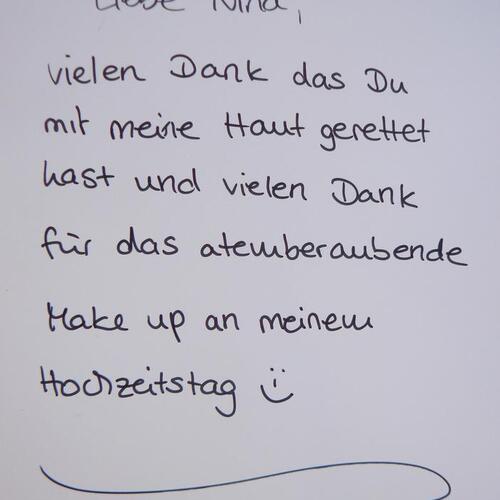 Liebe Nina,
vielen Dank das Du
mit meine Haut gerettet
hast und vielen Dank
für das atemberaubende
Make up an meinem
Hochzeitstag